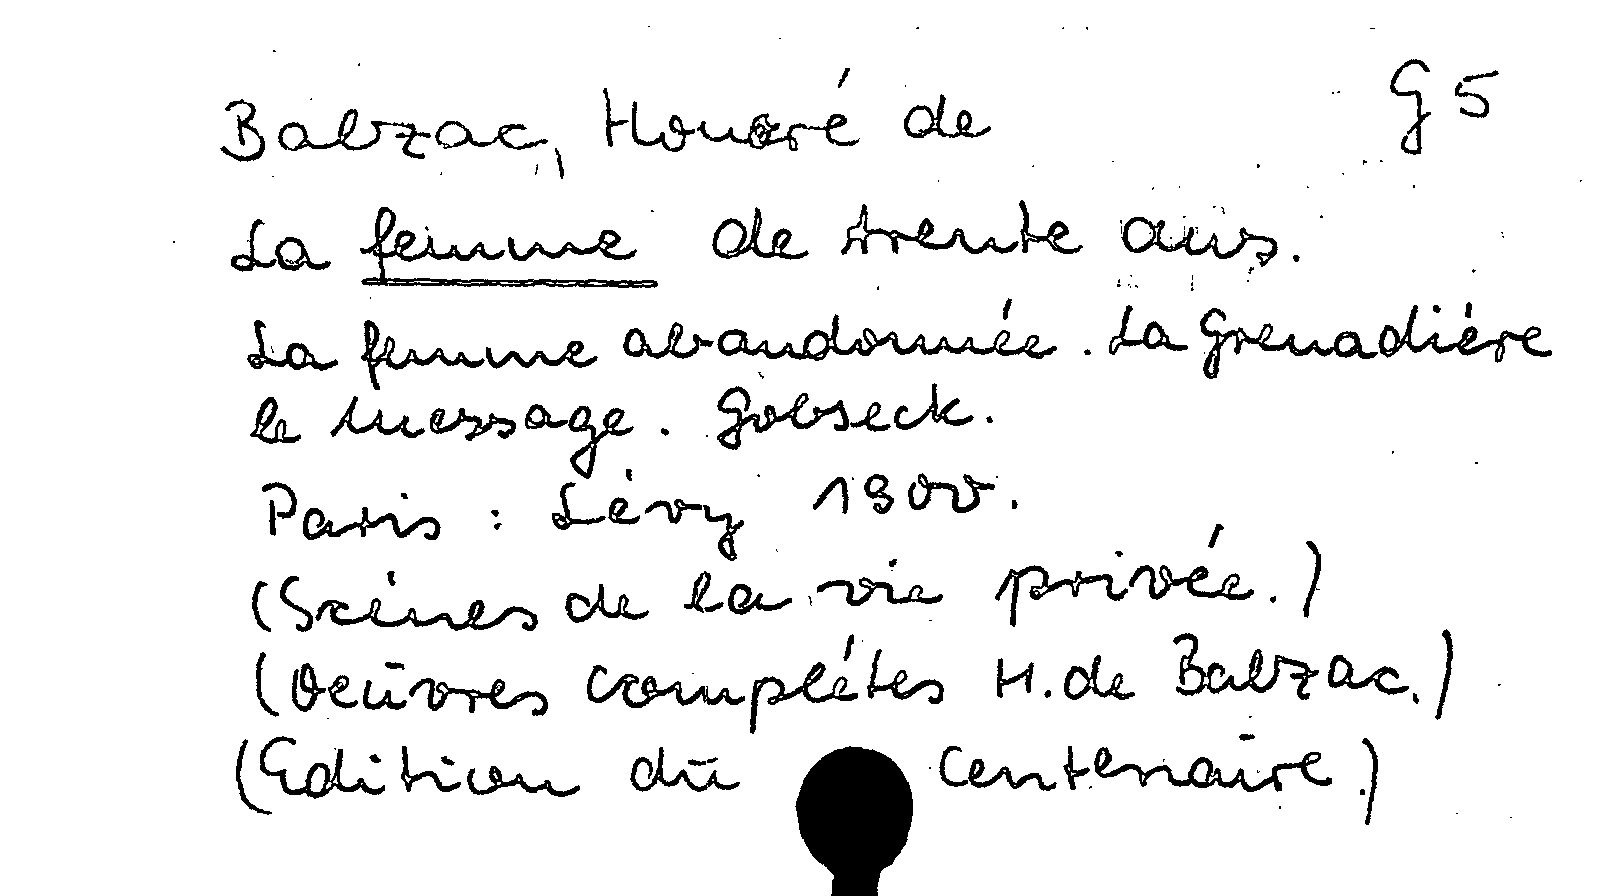 Balzac, Honoré de G 5
La femme de trente ans.
La femme abandonnée. La Grenadiére
le Message. Gobseck.
Paris : Lévy 1900.
(Scènes de la vie privée.)
(Oeūvres complétes H. de Balzac.)
(Edition dū Centenaire.)